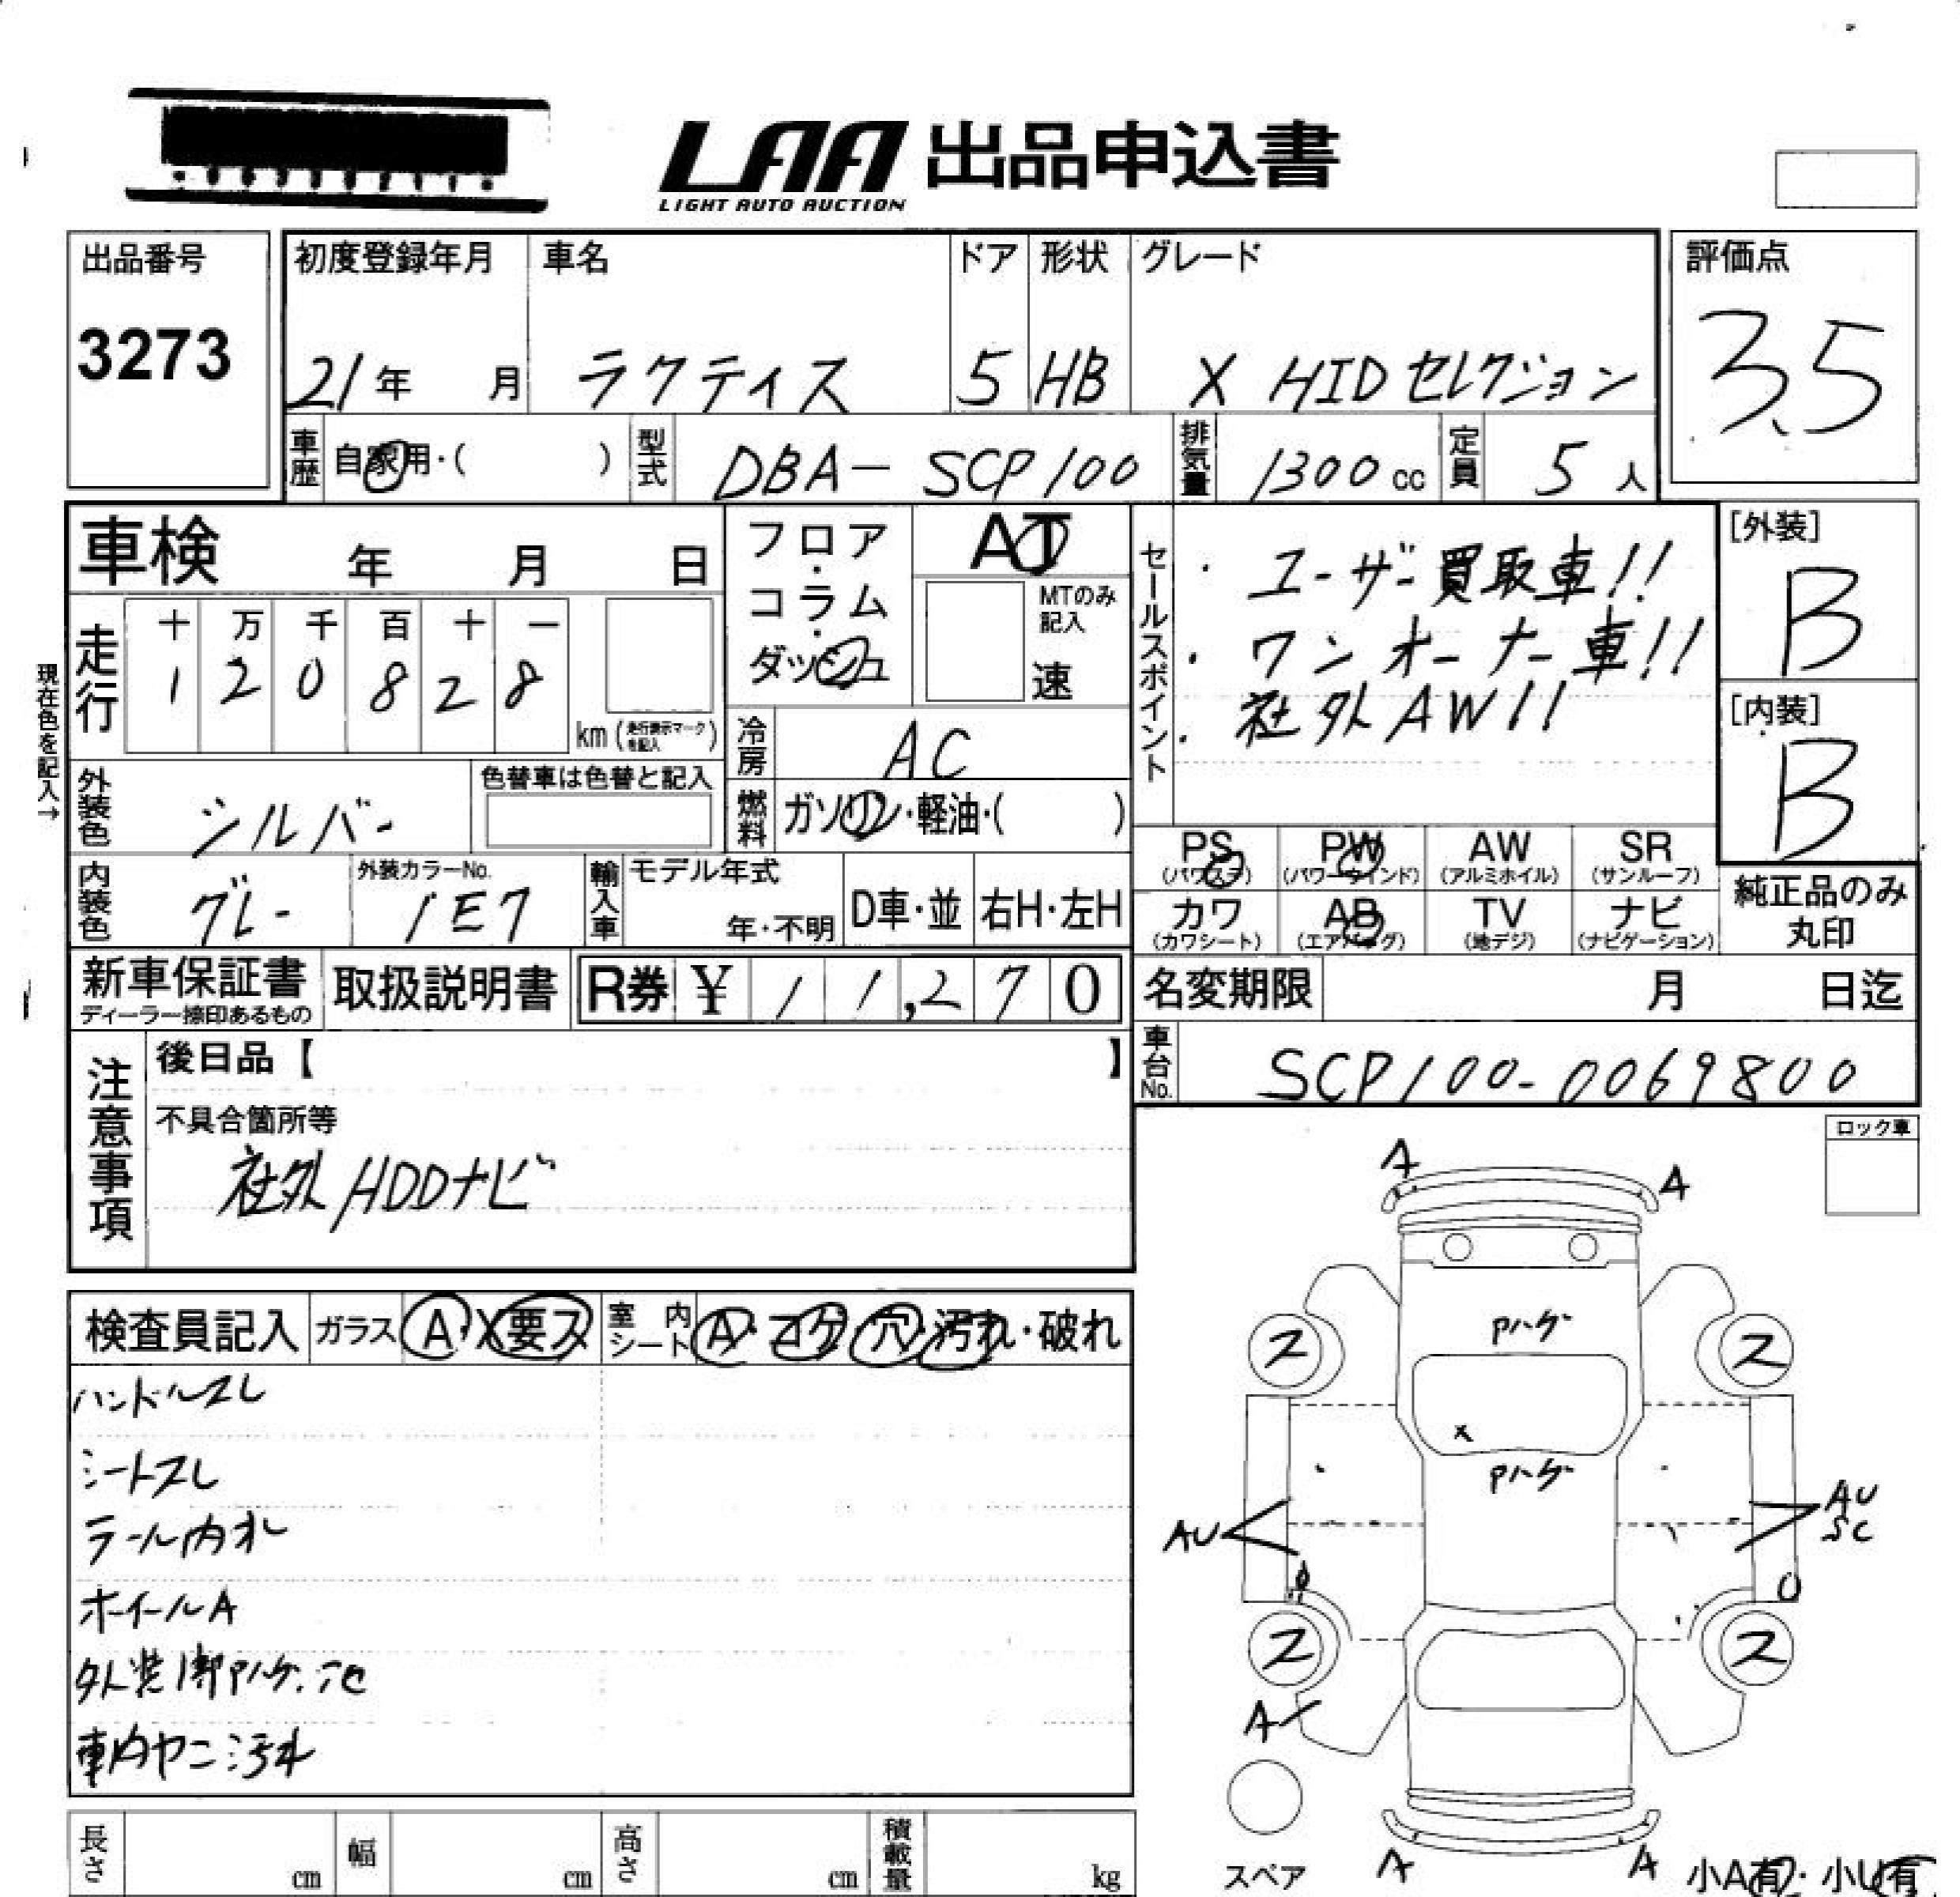 LAA 出品申込書
LIGHT AUTO AUCTION
出品番号
3273
初度登録年月
21年 月
車名
ラクティス
ドア
5
形状
HB
グレード
X HIDセレクション
評価点
3.5
車歴 自家用・( )
型式 DBA-SCP100
排気量 1300cc
定員 5人
車検 年 月 日
フロア・コラム・ダッシュ
AT
MTのみ記入
速
セールスポイント
・ユーザー買取車!!
・ワンオーナー車!!
・社外AW!!
[外装]
B
[内装]
B
現在色を記入→
走行
十 万 千 百 十 一
1 2 0 8 2 8
km(走行表示マークを記入)
冷房 AC
燃料 ガソリン・軽油・( )
外装色 シルバー
色替車は色替と記入
内装色 グレー
外装カラーNo.
1E7
輸入車
モデル年式
年・不明
D車・並
右H・左H
PS (パワステ)
PW (パワーウインド)
AW (アルミホイル)
SR (サンルーフ)
カワ (カワシート)
AB (エアバッグ)
TV (地デジ)
ナビ (ナビゲーション)
純正品のみ丸印
新車保証書
ディーラー捺印あるもの
取扱説明書
R券 ¥ 11,270
名変期限 月 日迄
車台No. SCP100-0069800
注意事項
後日品【 】
不具合箇所等
社外HDDナビ
ロック車
検査員記入
ガラス A・X要ス
室内シート A・コゲ・穴・汚れ・破れ
ハンドルスレ
シートスレ
ホイールA
車内ヤニ汚れ
A
A
Pハゲ
ス
ス
x
Pハゲ
AU
AU
SC
ス
ス
A
スペア
A
A
小A有・小U有
長さ cm
幅 cm
高さ cm
積載量 kg